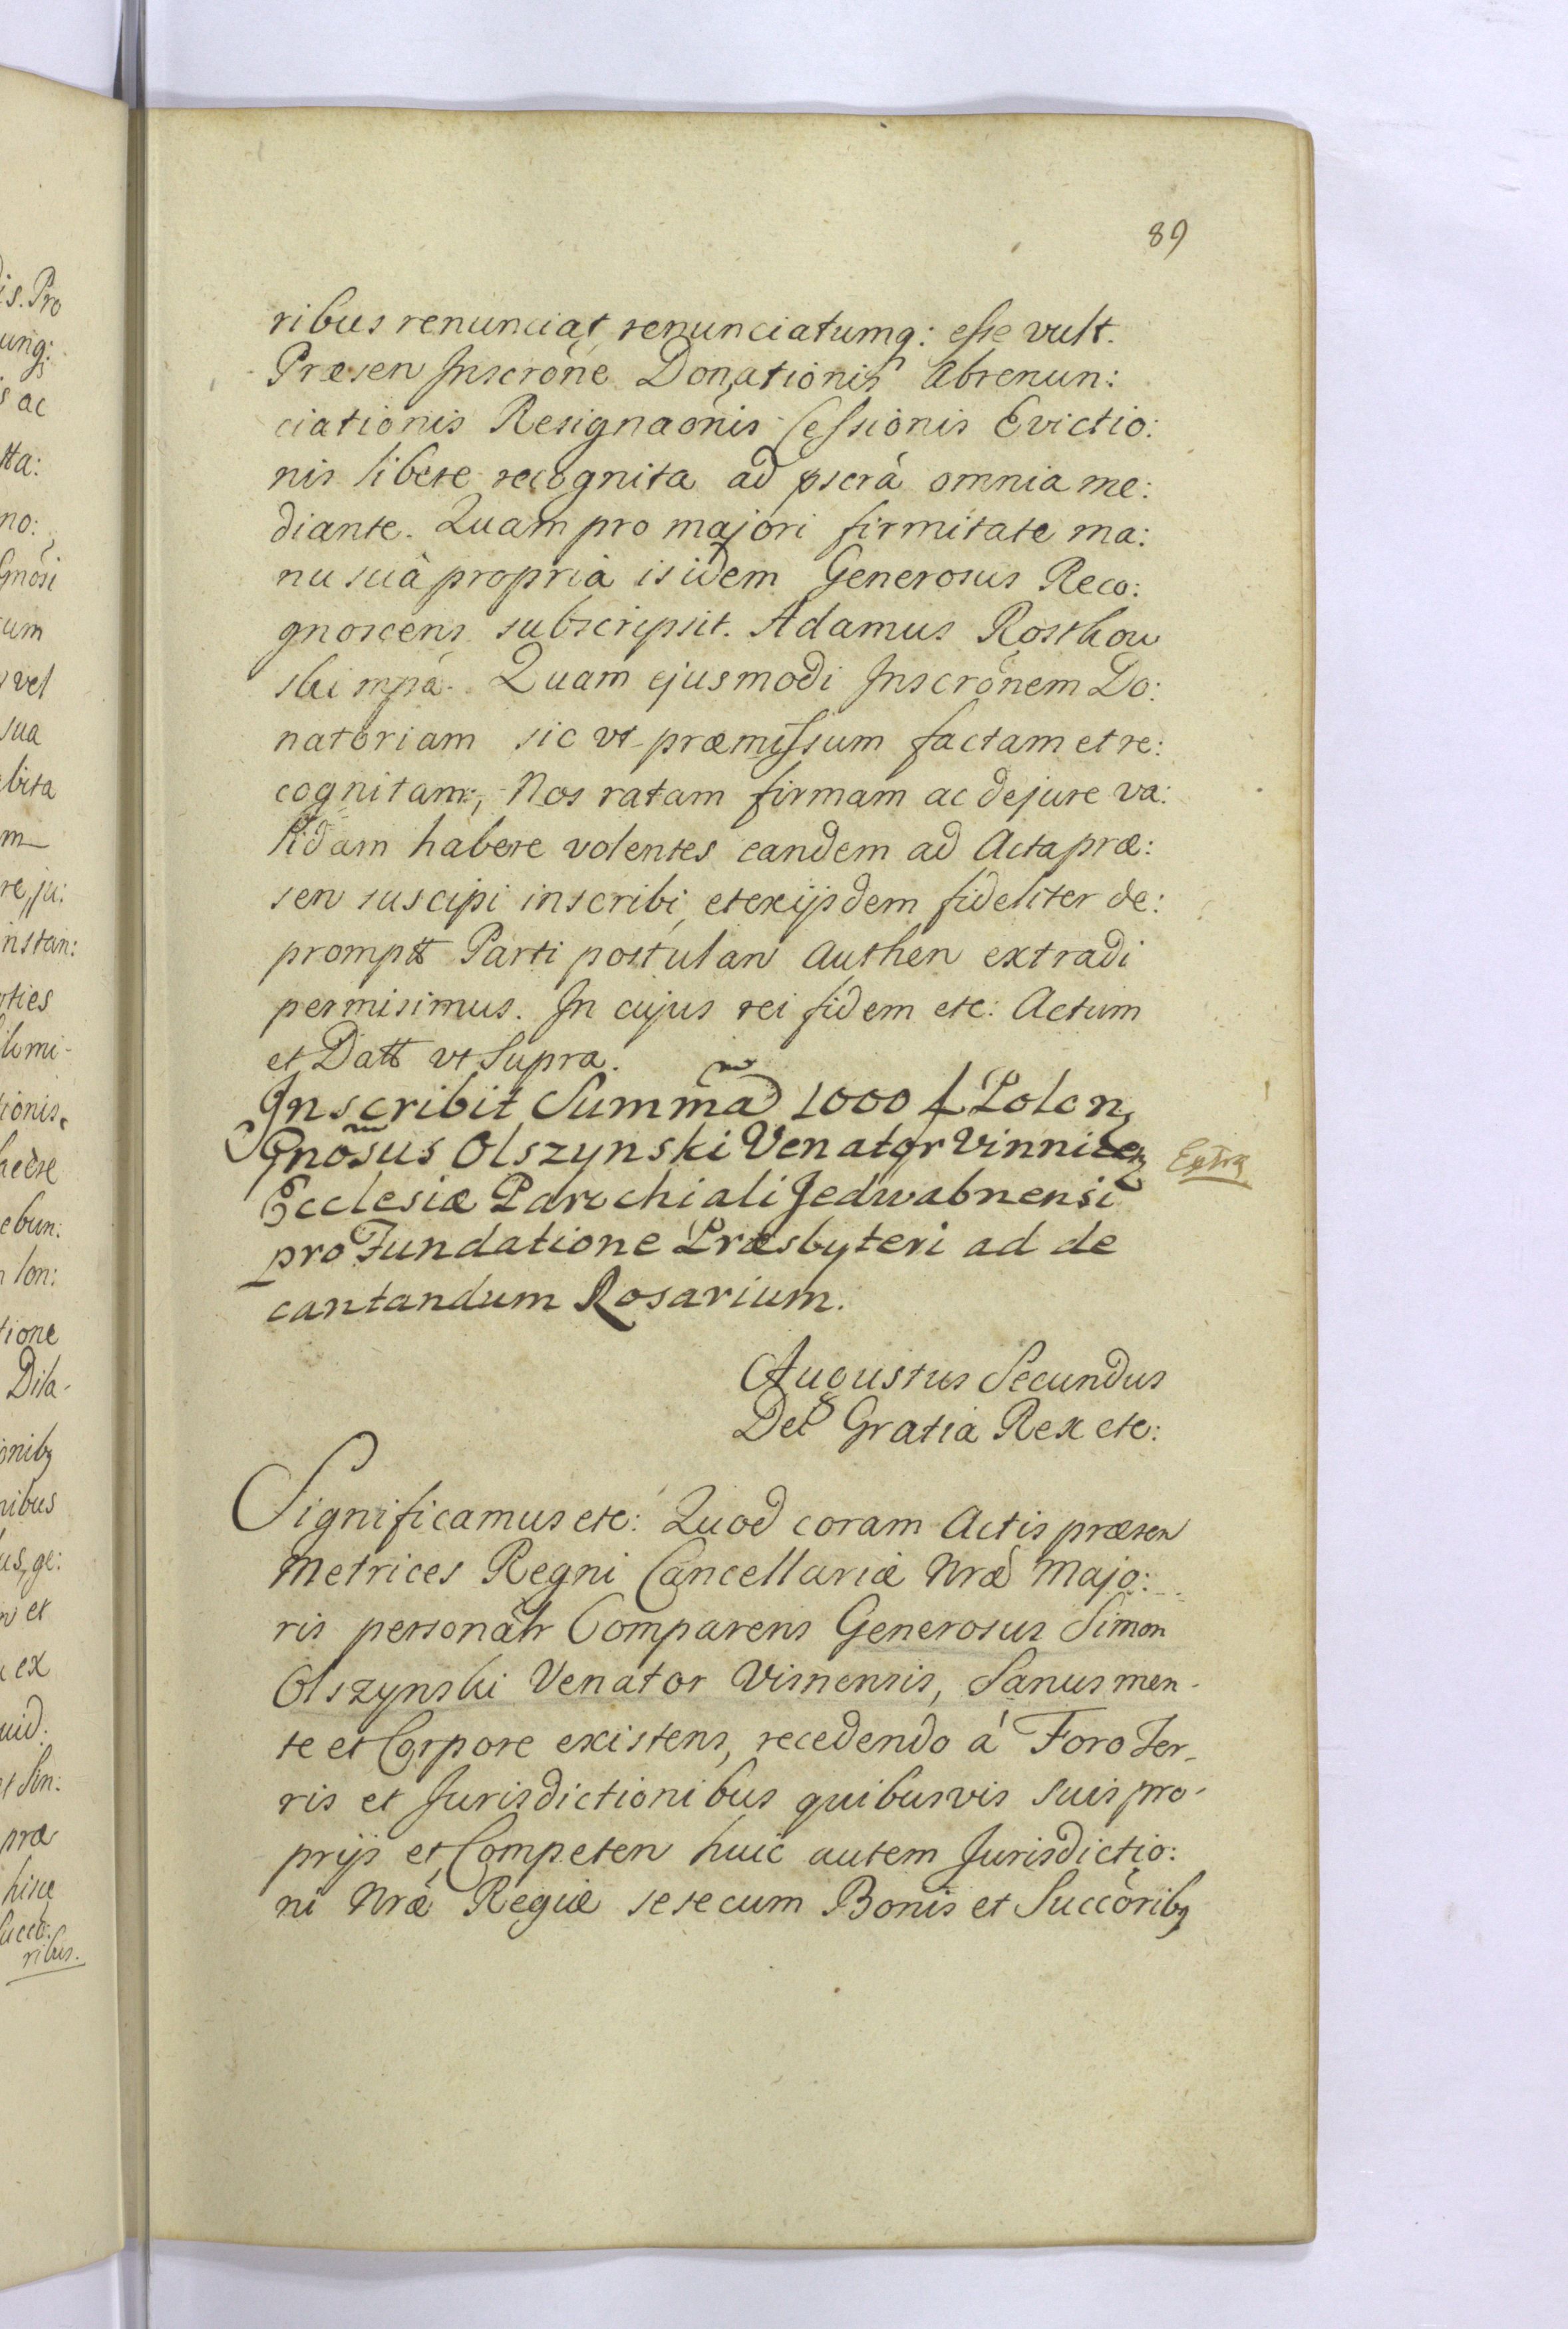 89
ribus renunciat, renunciatumq: esse vult.
Præsen Inscrõne Donationis Abrenun:
ciationis Resignaõnis Cessionis Evictio:
nis libere recognita ad pscrà omnia me:
diante. Quam pro majori firmitate ma:
nu suà propriâ isidem Generosus Reco:
gnoscens subscripsit. Adamus Rosthow
ski mpà. Quam ejusmodi Inscrõnem Do:
natoriam sic vt præmissum factam et re:
cognitam, Nos ratam firmam ac dejure va:
lidam habere volentes eandem ad Acta præ:
sen suscipi inscribi, et exijsdem fideliter de:
promptt Parti postulan Authen extradi
permisimus. In cujus rei fidem etc: Actum
et Datt vt Supra.
Inscribit Summã 1000 f Polon
Gnõsus Olszynski Venator Vinnicen
Ecclesiæ Parochiali Jedwabnensi
pro Fundatione Præsbyteri ad de
cantandum Rosarium.
Augustus Secundus
Dei Gratia Rex etc:
Significamus etc: Quod coram Actis præsen
Metrices Regni Cancellariæ Nræ Majo:
ris personalr Comparens Generosus Simon
Olszynski Venator Visnensis, Sanus men-
te et Corpore existens, recedendo à Foro Ter-
ris et Jurisdictionibus quibusvis suis pro-
prijs et Competen huic autem Jurisdictio:
ni Nræ Regiæ sese cum Bonis et Succõribq
is. Pro
unq:
s ac
tta:
no:
Gnõsi
cum
vel
sua
bita
m
re, ju:
instan:
ties
limi-
tionis
ebun:
lon:
tione
Dila-
onibq
nibus
us, ge:
et
ex
uid:
et Sin:
præ
ribus.